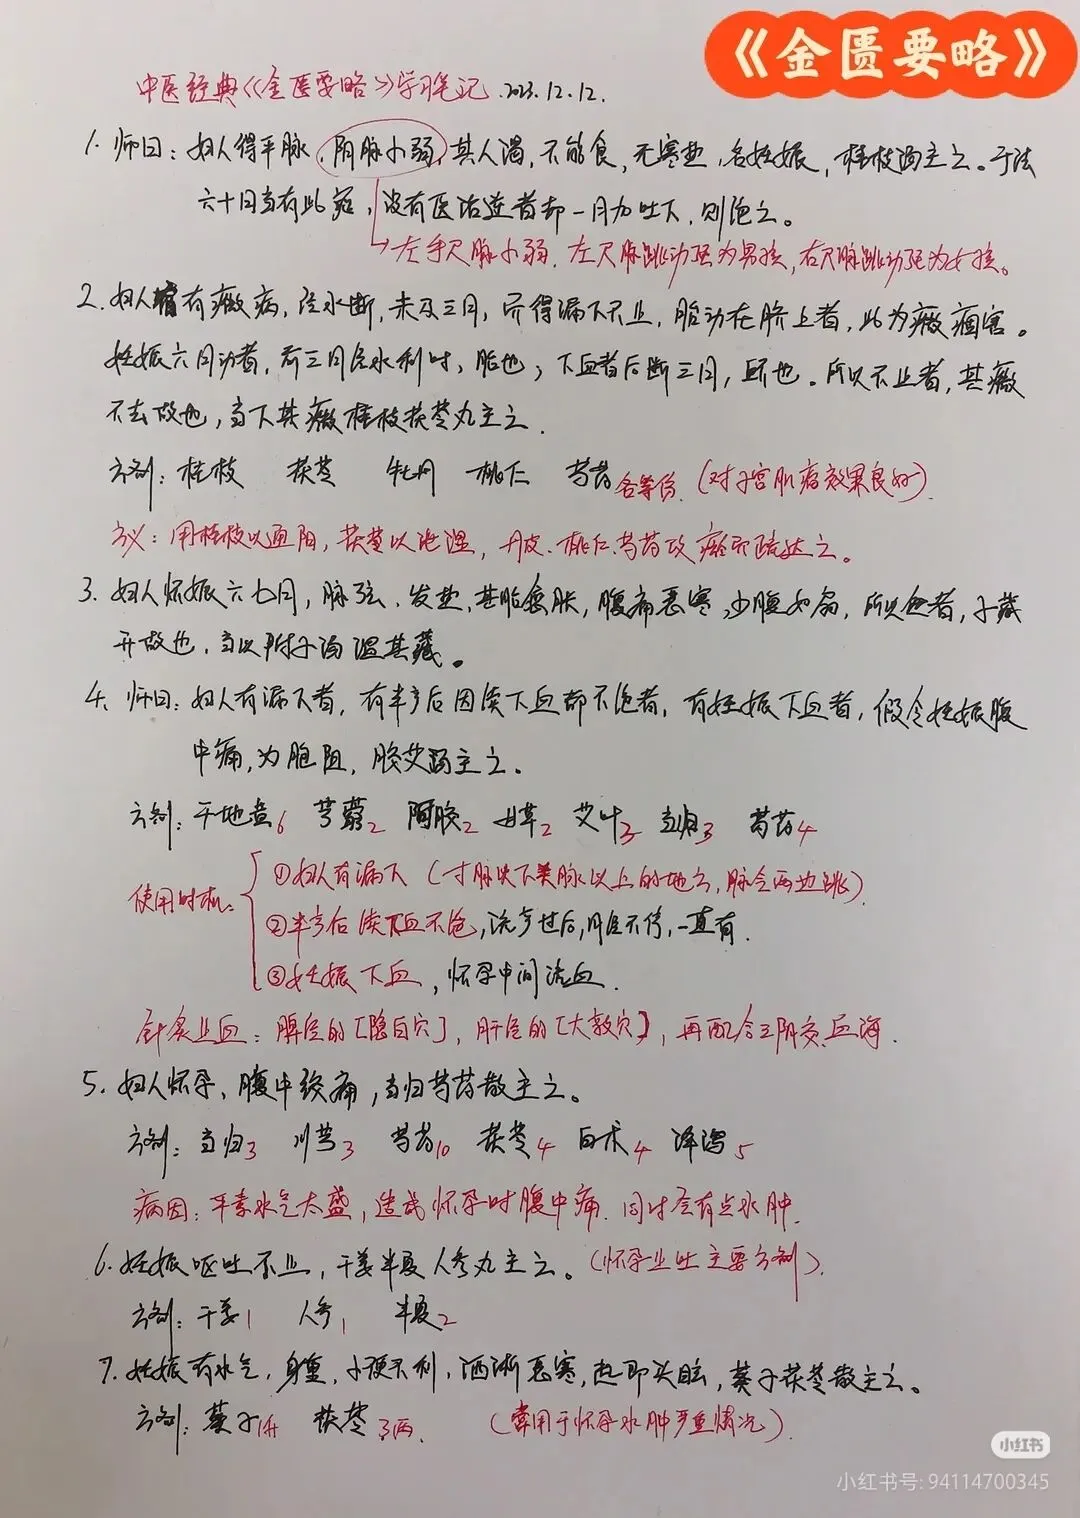 《金匮要略》
中医经典《金匮要略》学习笔记.2023.12.12.
1. 师曰：妇人得平脉，阴脉小弱，其人渴，不能食，无寒热，名妊娠，桂枝汤主之。于法
六十日当有此症，设有医治逆者却一月加吐下，则绝之。
→左手尺脉小弱.左尺脉跳动强为男孩,右尺脉跳动强为女孩。
2. 妇人有癥病，经水断，未及三月，而得漏下不止，胎动在脐上者，此为癥痼害。
妊娠六月动者，前三月经水利时，胎也；下血者后断三月，衃也。所以不止者，其癥
不去故也，当下其癥桂枝茯苓丸主之.
方剂：桂枝 茯苓 牡丹 桃仁 芍药 各等份.（对子宫肌瘤效果良好）
方义：用桂枝以通阳，茯苓以泄湿，丹皮.桃仁.芍药攻瘀而疏达之。
3. 妇人怀娠六七月，脉弦、发热，其胎愈胀，腹痛恶寒，少腹如扇，所以然者，子藏
开故也，当以附子汤温其藏。
4. 师曰：妇人有漏下者，有半产后因续下血都不绝者，有妊娠下血者，假令妊娠腹
中痛，为胞阻，胶艾汤主之。
方剂：干地黄6 芎藭2 阿胶2 甘草2 艾叶3 当归3 芍药4
使用时机：①妇人有漏下（寸脉以下关脉以上的地方,脉会两边跳）
②半产后续下血不绝,流产过后,月经不停,一直有.
③妊娠下血，怀孕中间流血.
针灸止血：脾经的[隐白穴]，肝经的[大敦穴]，再配合三阴交、血海.
5. 妇人怀孕、腹中绞痛，当归芍药散主之。
方剂：当归3 川芎3 芍药10 茯苓4 白术4 泽泻5
病因：平素水气太盛，造成怀孕时腹中痛.同时会有点水肿.
6. 妊娠呕吐不止，干姜半夏人参丸主之。（怀孕止吐主要方剂）.
方剂：干姜1 人参1 半夏2
7. 妊娠有水气，身重，小便不利，洒淅恶寒，起即头眩，葵子茯苓散主之。
方剂：葵子1升 茯苓3两.（常用于怀孕水肿严重情况）.
小红书
小红书号: 94114700345